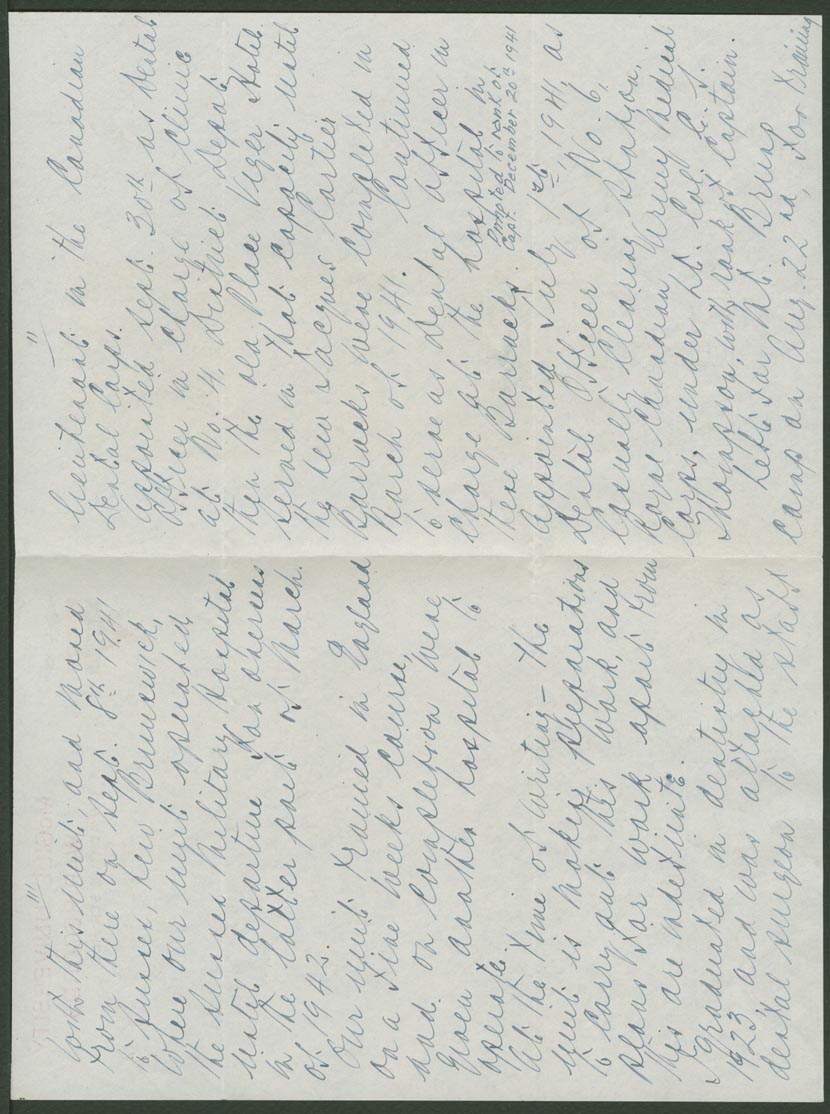 "
Lieutenant in the Canadian
Dental Corps.
Appointed Sept. 30th as Dental
Officer in charge of clinic
at No. 4, District Depot
then the old Place Viger Hotel
served in that capacity until
the new Jacques Cartier
Barracks were completed in
March of 1941. Continued
to serve as Dental Officer in
charge at the hospital in
these Barracks. Promoted to rank of
Capt. December 20th 1941
Appointed July 17th, 1941, as
Dental Officer of No. 6,
Casualty Clearing Station,
Royal Canadian Army Medical
Corps, under Lt. Col. C. T.
Thompson, with rank of Captain.
Left for Mt. Bruno
Camp on Aug. 22nd, for training
"'
with this unit, and moved
from there on Sept. 8th 1941
to Sussex, New Brunswick,
where our unit operated
the Sussex Military Hospital
until departure for overseas
in the latter part of March
of 1942.
Our unit trained in England
on a five weeks course,
and on completion were
given another hospital to
operate.
At the time of writing – the
unit is making preparations
to carry out this work, and
plans for work apart from
this are indefinite.
Graduated in dentistry in
1923 and was attached as
dental surgeon to the staff